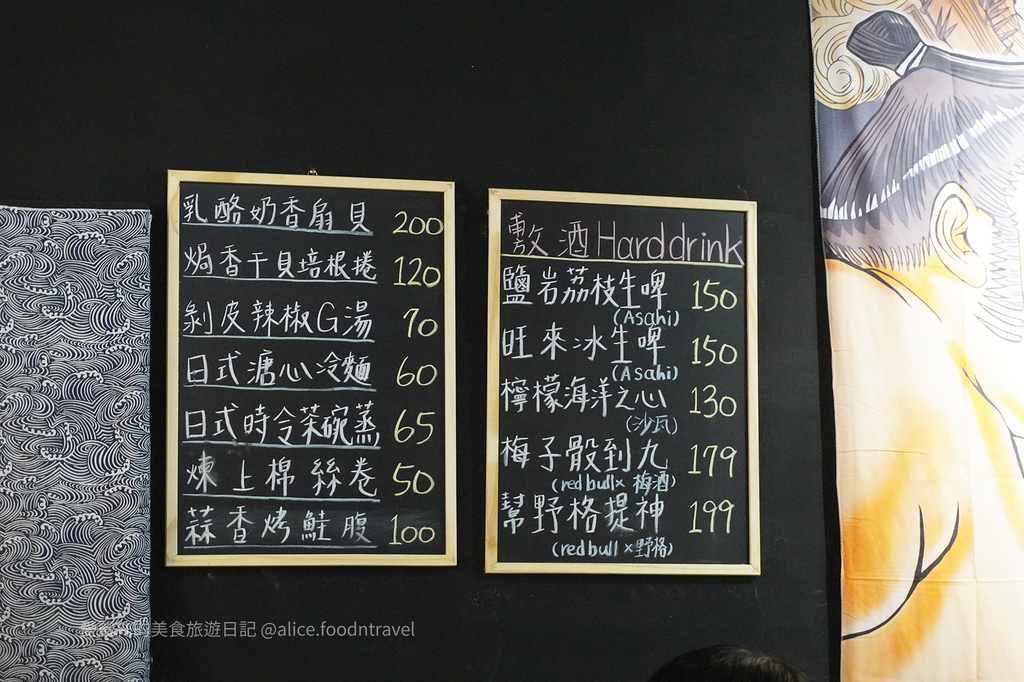 乳酪奶香扇貝 200
焗香干貝培根捲 120
剝皮辣椒G湯 70
日式溏心冷麵 60
日式時令茶碗蒸 65
煉上棉絲卷 50
蒜香烤鮭腹 100
敷酒 Hard drink
鹽岩荔枝生啤 150
(Asahi)
旺來冰生啤 150
(Asahi)
檸檬海洋之心 130
(沙瓦)
梅子骰到九 179
(redbull×梅酒)
幫野格提神 199
(redbull×野格)
的美食旅遊日記 @alice.foodntravel